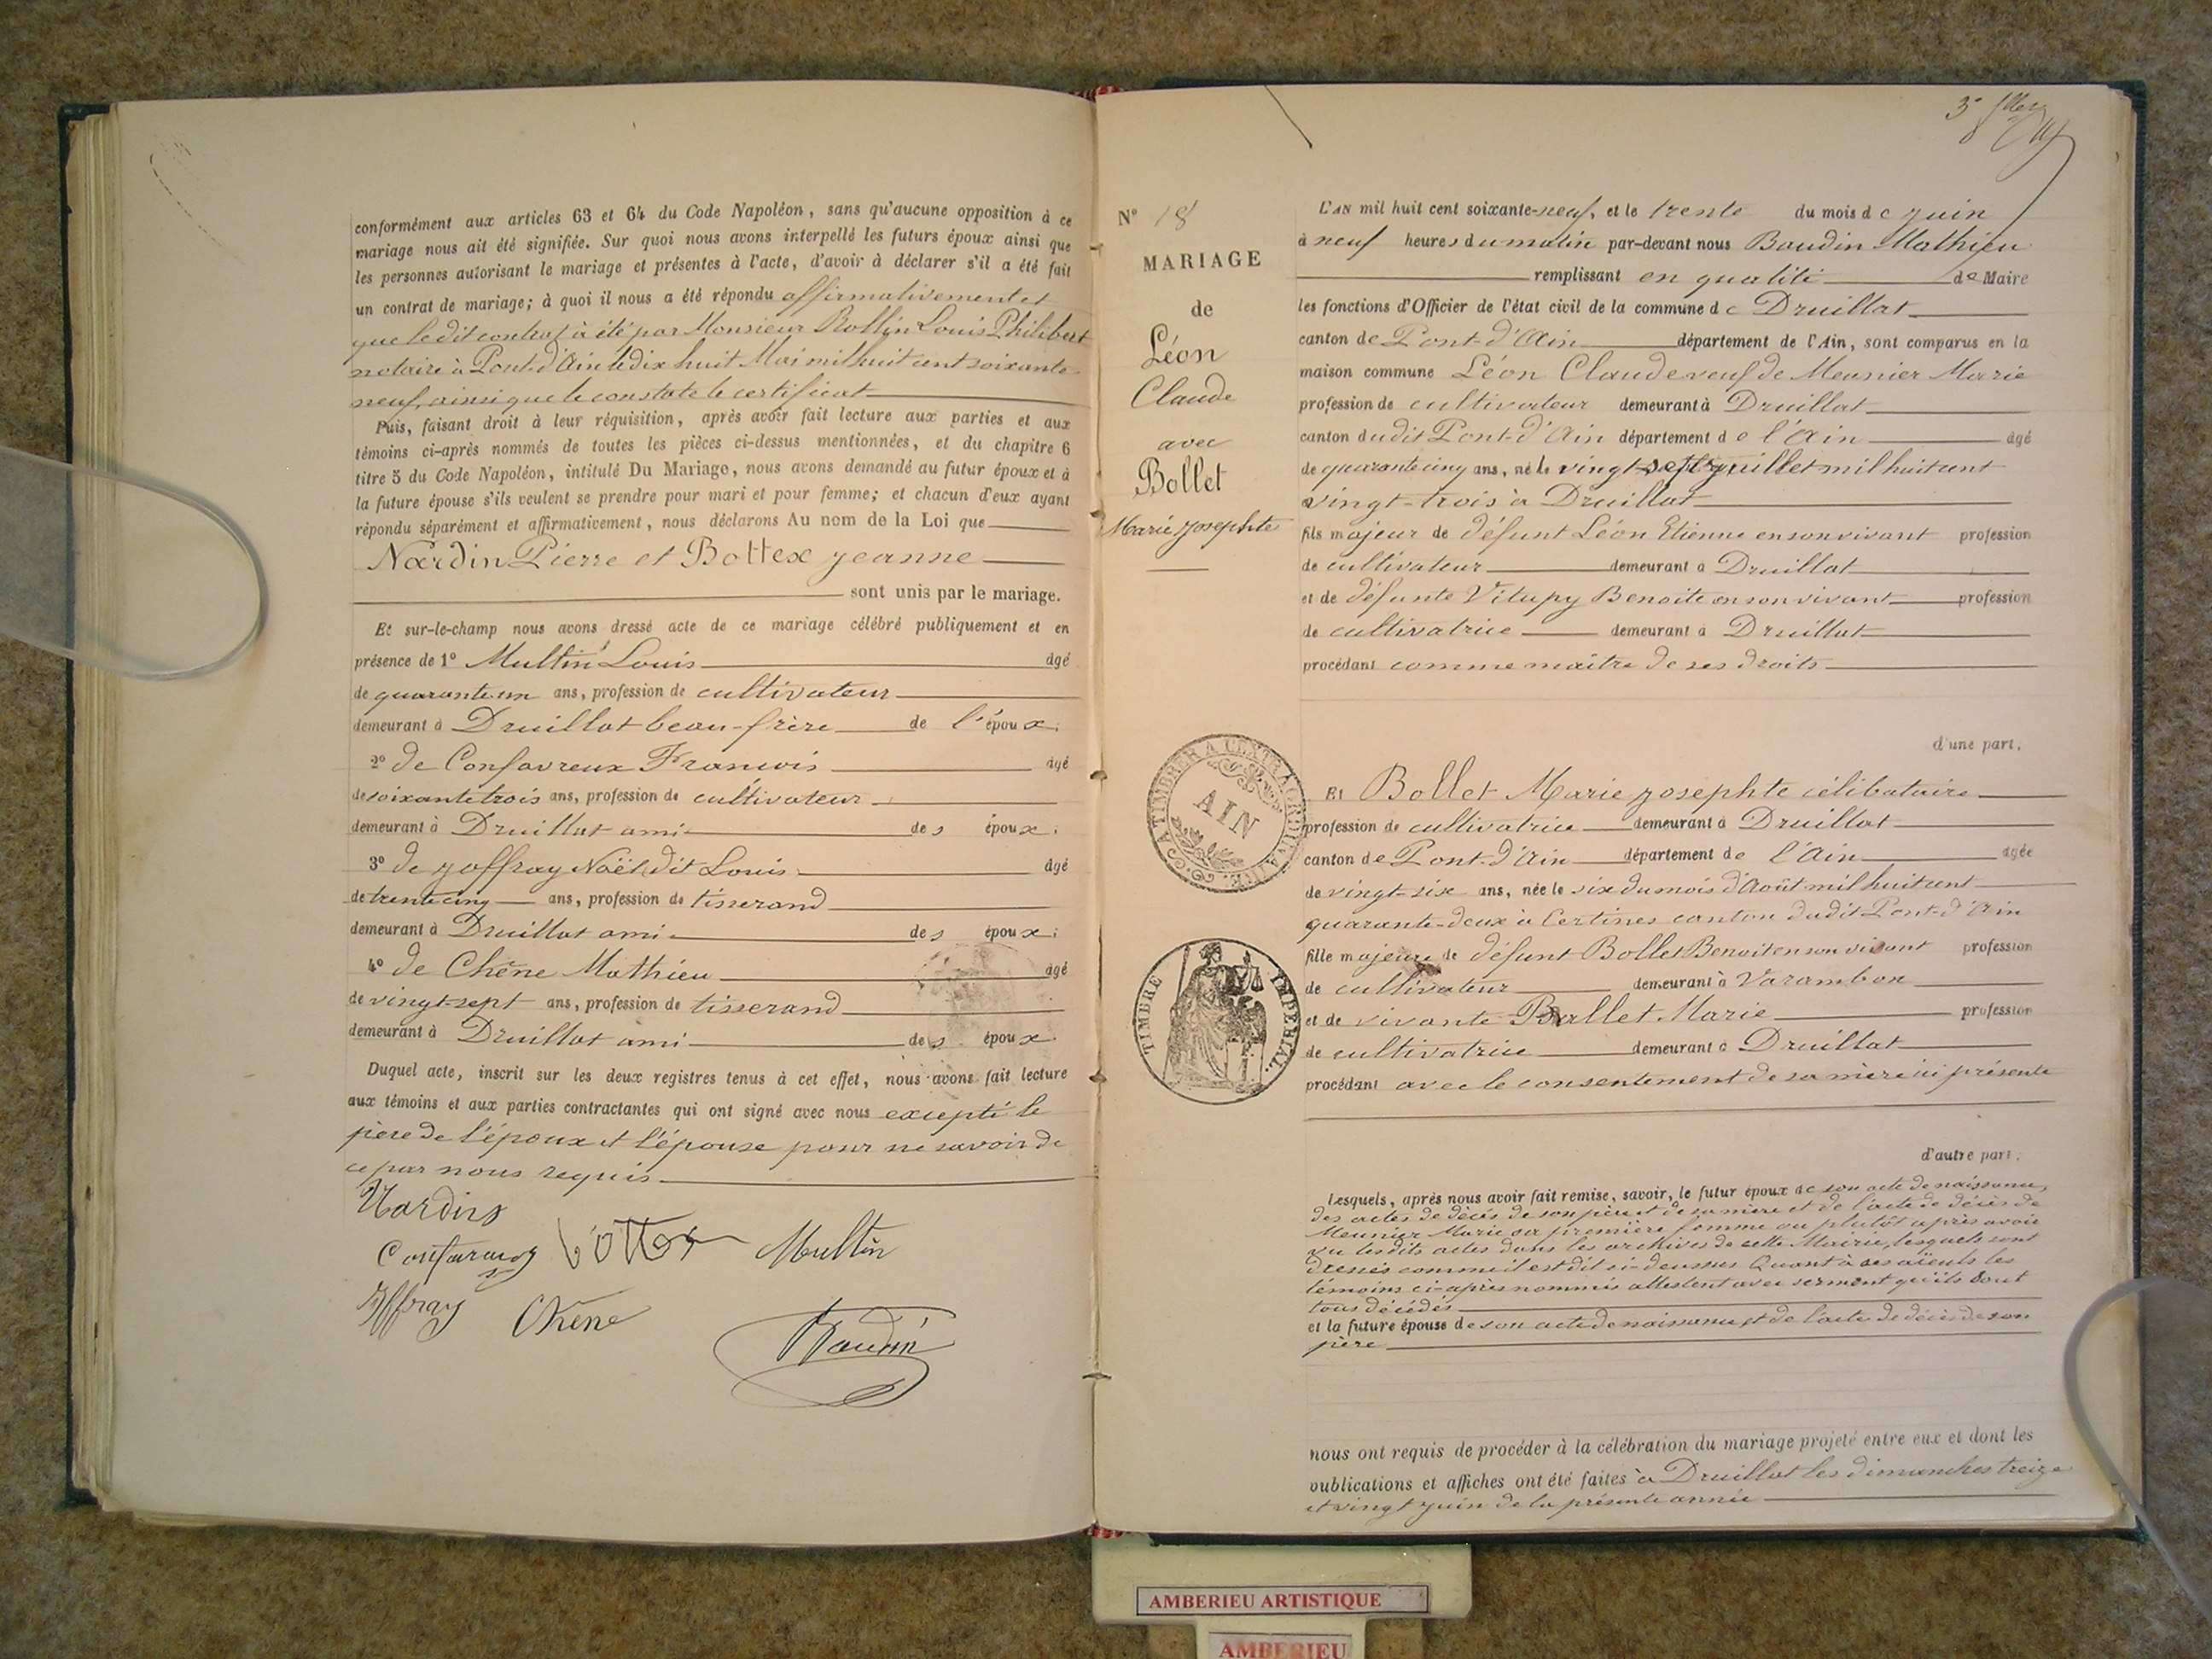 conformément aux articles 63 et 64 du Code Napoléon, sans qu'aucune opposition à ce
mariage nous ait été signifiée. Sur quoi nous avons interpellé les futurs époux ainsi que
les personnes autorisant le mariage et présentes à l'acte, d'avoir à déclarer s'il a été fait
un contrat de mariage; à quoi il nous a été répondu affirmativement et
que le dit contrat à été par Monsieur Rollin Louis Philibert
notaire à Pont-d'Ain le dix huit Mai mil huit cent soixante-
neuf, ainsi que le constate le certificat
Puis, faisant droit à leur réquisition, après avoir fait lecture aux parties et aux
témoins ci-après nommés de toutes les pièces ci-dessus mentionnées, et du chapitre 6
titre 5 du Code Napoléon, intitulé Du Mariage, nous avons demandé au futur époux et à
la future épouse s'ils veulent se prendre pour mari et pour femme; et chacun d'eux ayant
répondu séparément et affirmativement, nous déclarons Au nom de la Loi que
Nardin Pierre et Bottex Jeanne
sont unis par le mariage.
Et sur-le-champ nous avons dressé acte de ce mariage célébré publiquement et en
présence de 1° Multin Louis âgé
de quarante un ans, profession de cultivateur
demeurant à Druillat beau-frère de l'époux;
2° de Confavreux Francois âgé
de soixante trois ans, profession de cultivateur
demeurant à Druillat ami des époux;
3° de Joffray Noël dit Louis âgé
de trente cinq ans, profession de tisserand
demeurant à Druillat ami des époux;
4° de Chêne Mathieu âgé
de vingt-sept ans, profession de tisserand
demeurant à Druillat ami des époux
Duquel acte, inscrit sur les deux registres tenus à cet effet, nous avons fait lecture
aux témoins et aux parties contractantes qui ont signé avec nous excepté le
père de l'époux et l'épouse pour ne savoir de
ce par nous requis
Nardin
Bottex Multin
Joffray Chêne
Baudin
N° 18
MARIAGE
de
Léon
Claude
avec
Bollet
Marie Josephte
A TIMBRER A L'EXTRAORDINAIRE
AIN
TIMBRE IMPERIAL
L'AN mil huit cent soixante-neuf, et le trente du mois de Juin
à neuf heures du matin par-devant nous Baudin Mathieu
remplissant en qualité de Maire
les fonctions d'Officier de l'état civil de la commune de Druillat
canton de Pont-d'Ain département de l'Ain, sont comparus en la
maison commune Léon Claude veuf de Meunier Marie
profession de cultivateur demeurant à Druillat
canton dudit Pont-d'Ain département de l'Ain âgé
de quarante cinq ans, né le vingt-sept Juillet mil huit cent
vingt-trois à Druillat
fils majeur de défunt Léon Etienne en son vivant profession
de cultivateur demeurant à Druillat
et de défunte Vitupy Benoite en son vivant profession
de cultivatrice demeurant à Druillat
procédant comme maître de ses droits
d'une part.
Et Bollet Marie Josephte célibataire
profession de cultivatrice demeurant à Druillat
canton de Pont-d'Ain département de l'Ain âgée
de vingt-six ans, née le six du mois d'Août mil huit cent
quarante-deux à Certines canton dudit Pont-d'Ain
fille majeure de défunt Bollet Benoit en son vivant profession
de cultivateur demeurant à Varambon
et de vivante Ballet Marie profession
de cultivatrice demeurant à Druillat
procédant avec le consentement de sa mère ici présente
d'autre part.
Lesquels, après nous avoir fait remise, savoir, le futur époux de son acte de naissance,
des actes de décès de son père et de sa mère et de l'acte de décès de
Meunier Marie sa première femme ou plutôt après avoir
vu lesdits actes dans les archives de cette Mairie, lesquels sont
dressés comme il est dit ci-dessus Quant à ses aïeuls les
témoins ci-après nommés attestent avec serment qu'ils sont
tous décédés
et la future épouse de son acte de naissance et de l'acte de décès de son
père
nous ont requis de procéder à la célébration du mariage projeté entre eux et dont les
publications et affiches ont été faites à Druillat les dimanches treize
et vingt Juin de la présente année
AMBERIEU ARTISTIQUE
AMBERIEU